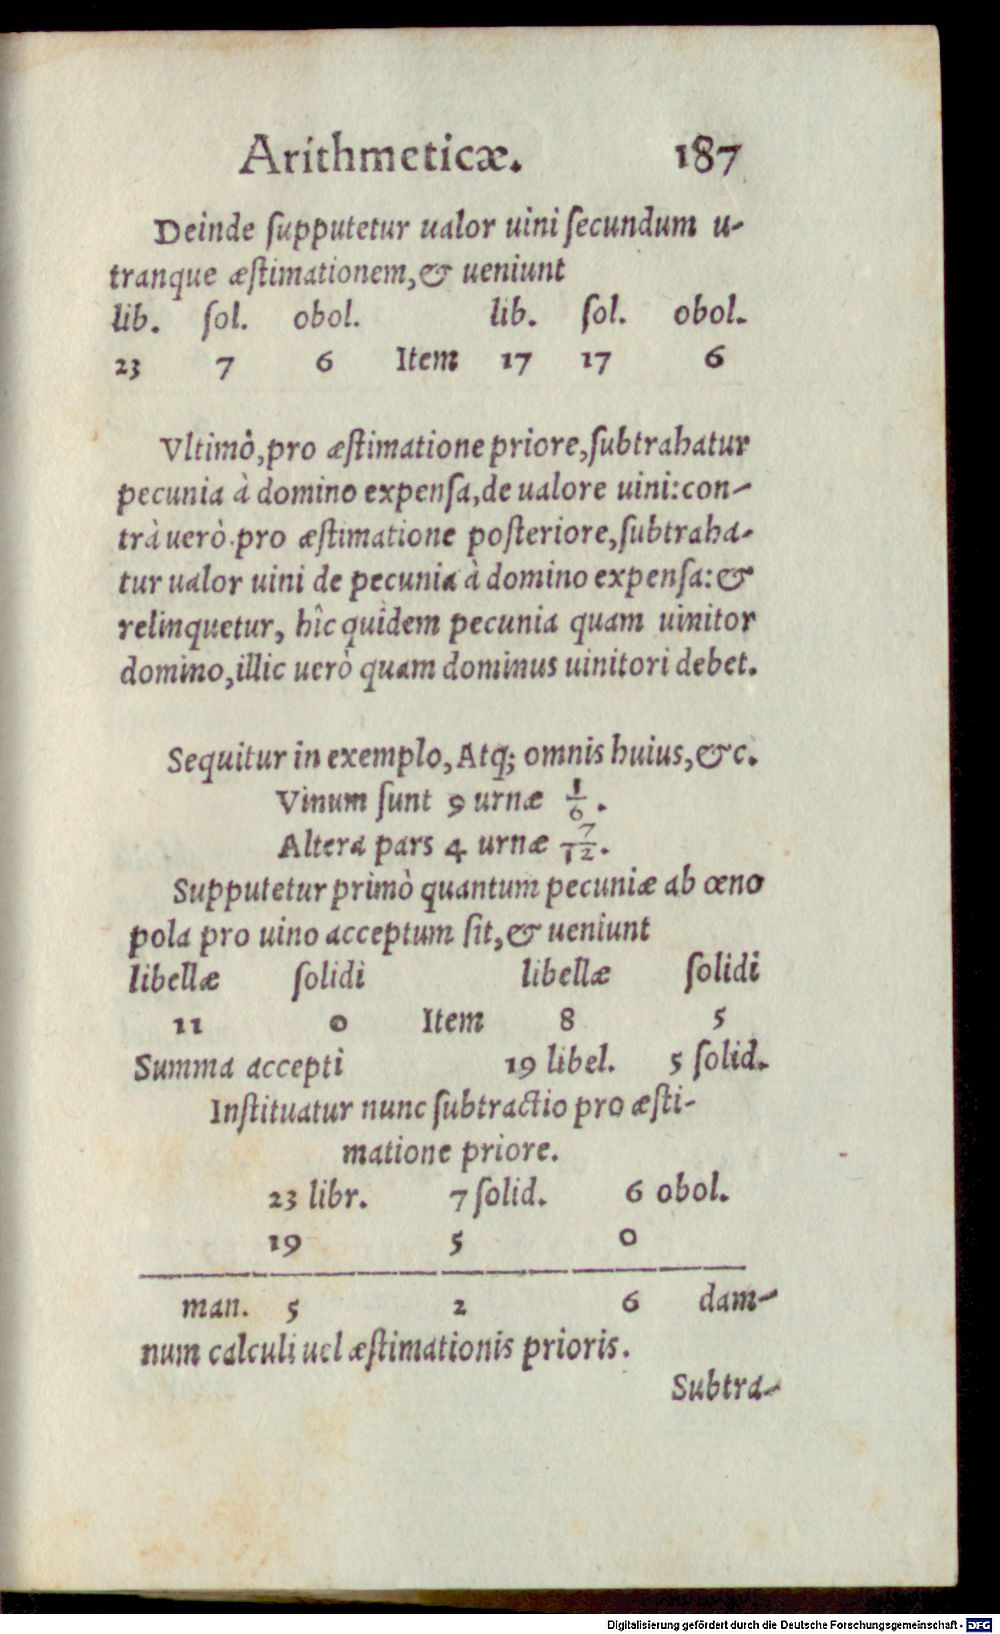 Arithmeticæ. 187
Deinde ſupputetur ualor uini ſecundum u-
tranque æſtimationem, & ueniunt
lib. ſol. obol. lib. ſol. obol.
23 7 6 Item 17 17 6
Vltimò, pro æſtimatione priore, ſubtrahatur
pecunia à domino expenſa, de ualore uini: con-
trà uerò pro æſtimatione poſteriore, ſubtraha-
tur ualor uini de pecunia à domino expenſa: &
relinquetur, hîc quidem pecunia quam uinitor
domino, illic uerò quam dominus uinitori debet.
Sequitur in exemplo, Atq; omnis huius, &c.
Vinum ſunt 9 urnæ 1/6.
Altera pars 4 urnæ 7/12.
Supputetur primò quantum pecuniæ ab œno
pola pro uino acceptum ſit, & ueniunt
libellæ ſolidi libellæ ſolidi
11 0 Item 8 5
Summa accepti 19 libel. 5 ſolid.
Inſtituatur nunc ſubtractio pro æſti-
matione priore.
23 libr. 7 ſolid. 6 obol.
19 5 0
man. 5 2 6 dam-
num calculi uel æſtimationis prioris.
Subtra-
Digitalisierung gefördert durch die Deutsche Forschungsgemeinschaft - DFG